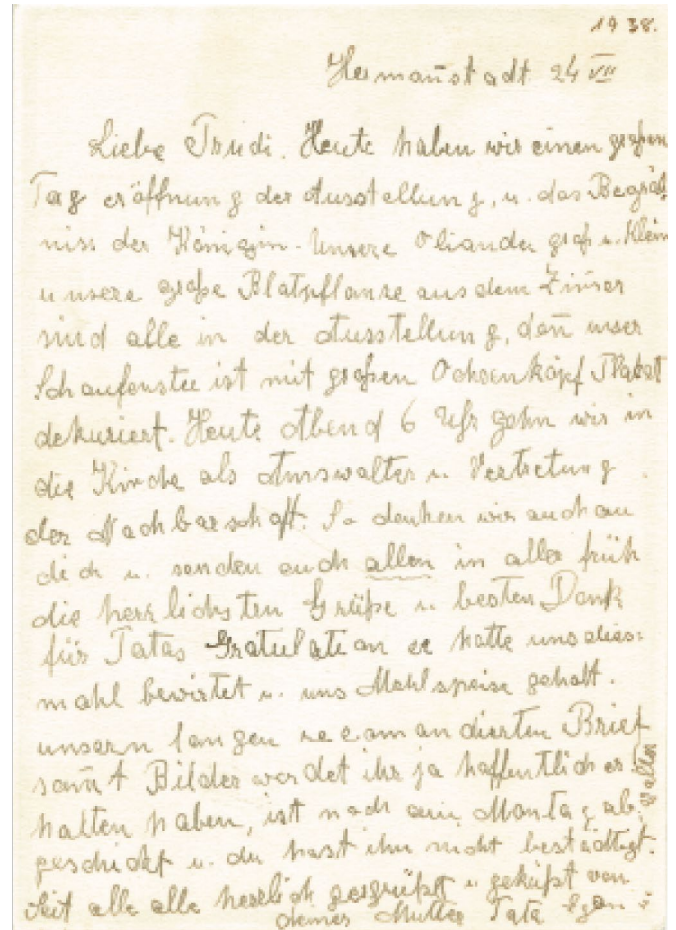 1938.
Hermanstadt 24 VII
Liebe Trudi. Heute haben wir einen großen
Tag eröffnung der Ausstellung, u. das Begräb
niss der Königin. Unsere Oliander groß u. Klein
unsere große Blatpflanze aus dem Zimer
sind alle in der Ausstellung, dan unser
Schaufenster ist mit großen Ochsenkopf
dekuriert. Heute Abend 6 Uhr gehn wir in
die Kirche als Amswalter u. Vertretung
der Nachbarschaft. So denken wir auch an
dich u. senden euch allen in aller früh
die herzlichsten Grüße u. besten Dank
für Tatas Gratulation er hatte uns dies=
mahl bewirtet u. uns Mehlspeise geholt.
unsern langen recomandierten Brief
samt Bilder werdet ihr ja hoffentlich er=
halten haben, ist noch am Montag ab=
geschickt u. du hast ihn nicht bestädtigt.
Seit alle alle herzlich gegrüßt u geküßt von
deiner Mutter Tata u
Walter